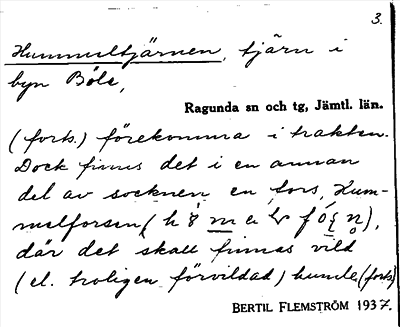 3.
Hummeltjärnen, tjärn i
byn Böle,
Ragunda sn och tg, Jämtl. län.
(forts.) förekomma i trakten.
Dock finns det i en annan
del av socknen en fors, Hum-
melforsen
där det skall finnas vild
(el. troligen förvildad) humle (forts)
BERTIL FLEMSTRÖM 1937.